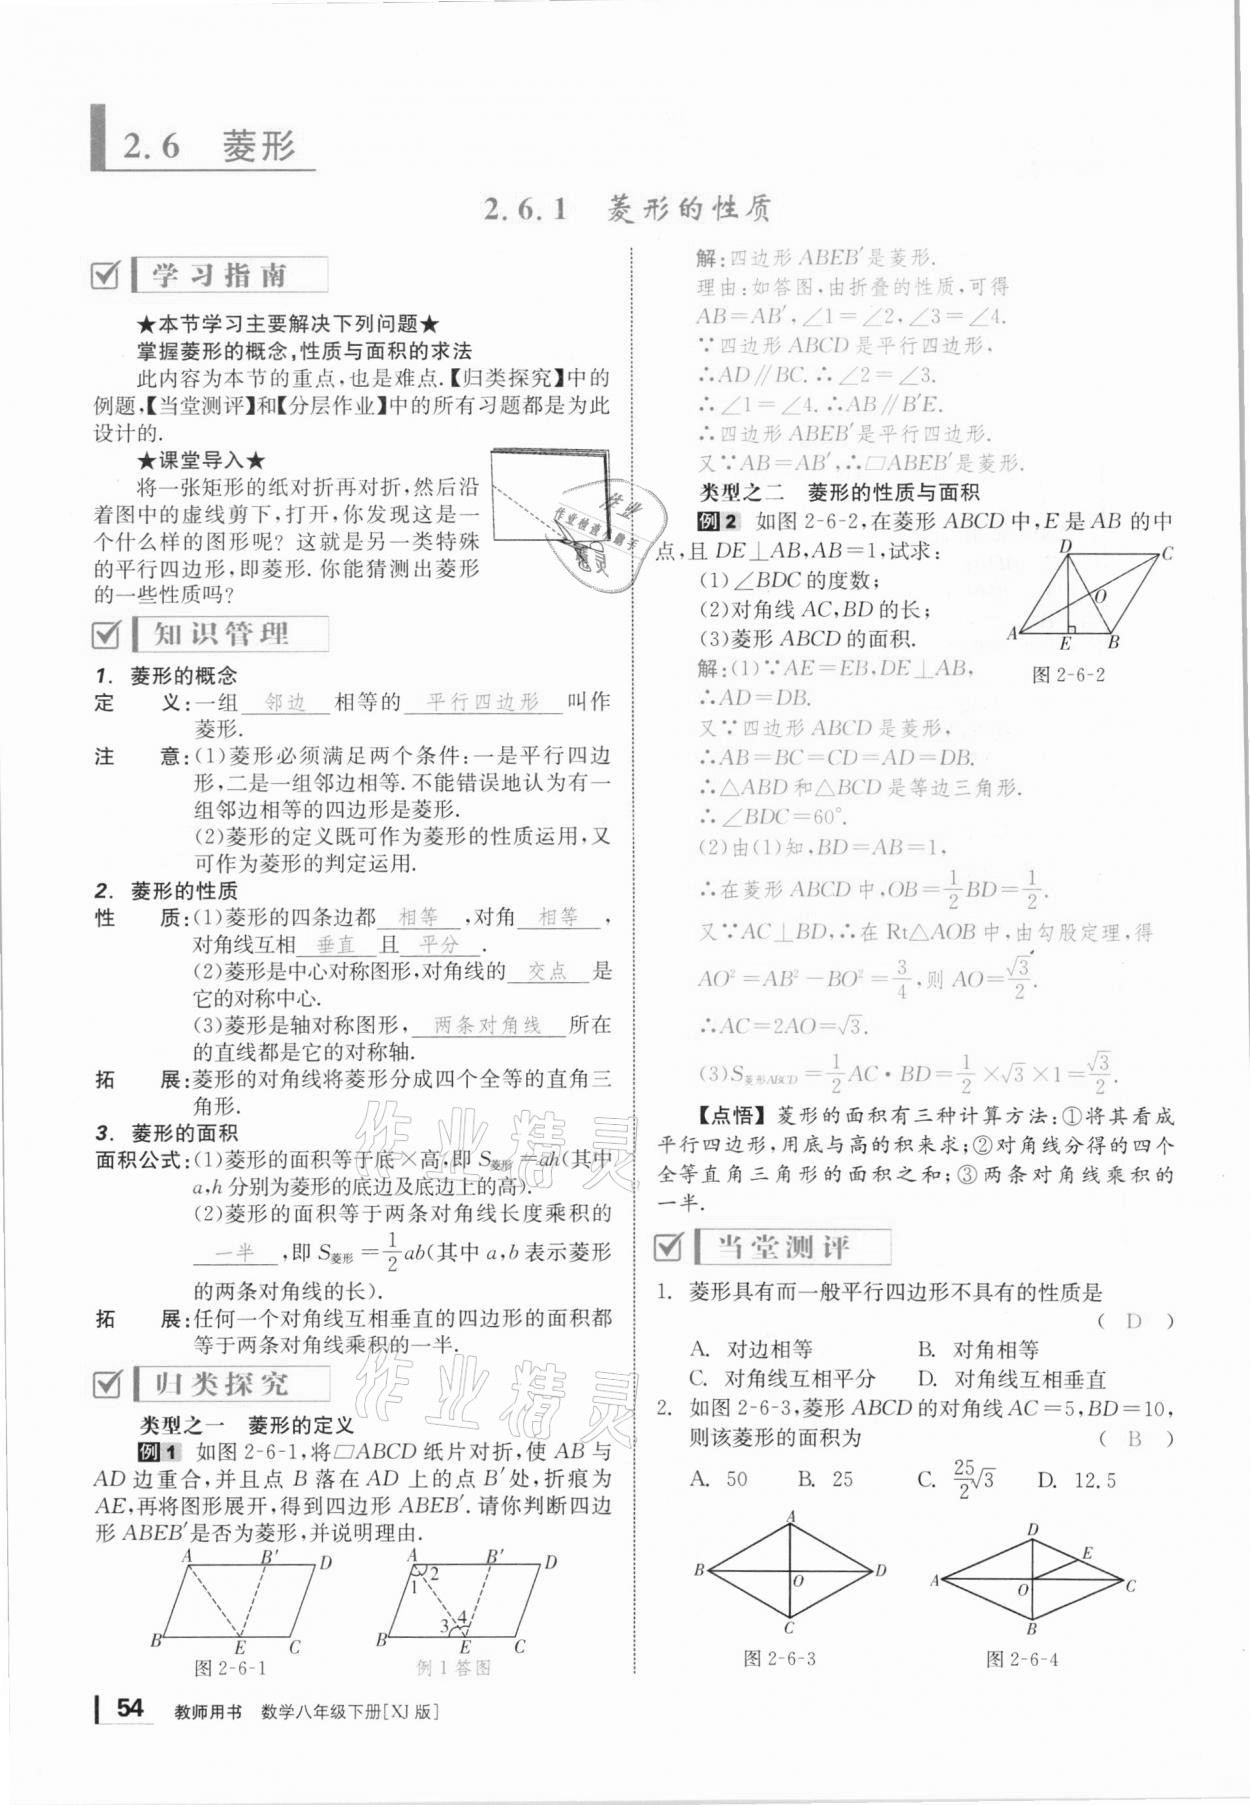 2.6 菱形
2.6.1 菱形的性质
学习指南
★本节学习主要解决下列问题★
掌握菱形的概念,性质与面积的求法
此内容为本节的重点,也是难点.【归类探究】中的
例题,【当堂测评】和【分层作业】中的所有习题都是为此
设计的.
★课堂导入★
将一张矩形的纸对折再对折,然后沿
着图中的虚线剪下,打开,你发现这是一
个什么样的图形呢? 这就是另一类特殊
的平行四边形,即菱形.你能猜测出菱形
的一些性质吗?
知识管理
1. 菱形的概念
定 义:一组 邻边 相等的 平行四边形 叫作
菱形.
注 意:(1)菱形必须满足两个条件:一是平行四边
形,二是一组邻边相等.不能错误地认为有一
组邻边相等的四边形是菱形.
(2)菱形的定义既可作为菱形的性质运用,又
可作为菱形的判定运用.
2. 菱形的性质
性 质:(1)菱形的四条边都 相等 ,对角 相等 ,
对角线互相 垂直 且 平分 .
(2)菱形是中心对称图形,对角线的 交点 是
它的对称中心.
(3)菱形是轴对称图形, 两条对角线 所在
的直线都是它的对称轴.
拓 展:菱形的对角线将菱形分成四个全等的直角三
角形.
3. 菱形的面积
面积公式:(1)菱形的面积等于底×高,即 S菱形=ah(其中
a,h 分别为菱形的底边及底边上的高).
(2)菱形的面积等于两条对角线长度乘积的
一半 ,即 S菱形=1/2ab(其中 a,b 表示菱形
的两条对角线的长).
拓 展:任何一个对角线互相垂直的四边形的面积都
等于两条对角线乘积的一半.
归类探究
类型之一 菱形的定义
例1 如图 2-6-1,将▱ABCD 纸片对折,使 AB 与
AD 边重合,并且点 B 落在 AD 上的点 B′处,折痕为
AE,再将图形展开,得到四边形 ABEB′.请你判断四边
形 ABEB′是否为菱形,并说明理由.
A B′ D
B E C
图 2-6-1
A B′ D
1 2
3 4
B E C
例 1 答图
54 教师用书 数学八年级下册[XJ 版]
解:四边形 ABEB′是菱形.
理由:如答图,由折叠的性质,可得
AB=AB′,∠1=∠2,∠3=∠4.
∵四边形 ABCD 是平行四边形,
∴AD∥BC.∴∠2=∠3.
∴∠1=∠4.∴AB∥B′E.
∴四边形 ABEB′是平行四边形.
又∵AB=AB′,∴▱ABEB′是菱形.
类型之二 菱形的性质与面积
例2 如图 2-6-2,在菱形 ABCD 中,E 是 AB 的中
点,且 DE⊥AB,AB=1,试求:
(1)∠BDC 的度数;
(2)对角线 AC,BD 的长;
(3)菱形 ABCD 的面积.
D C
O
A E B
图 2-6-2
解:(1)∵AE=EB,DE⊥AB,
∴AD=DB.
又∵四边形 ABCD 是菱形,
∴AB=BC=CD=AD=DB.
∴△ABD 和△BCD 是等边三角形.
∴∠BDC=60°.
(2)由(1)知,BD=AB=1,
∴在菱形 ABCD 中,OB=1/2BD=1/2.
又∵AC⊥BD,∴在 Rt△AOB 中,由勾股定理,得
AO²=AB²-BO²=3/4,则 AO=√3/2.
∴AC=2AO=√3.
(3)S菱形ABCD=1/2AC·BD=1/2×√3×1=√3/2.
【点悟】菱形的面积有三种计算方法:①将其看成
平行四边形,用底与高的积来求;②对角线分得的四个
全等直角三角形的面积之和;③两条对角线乘积的
一半.
当堂测评
1. 菱形具有而一般平行四边形不具有的性质是
( D )
A. 对边相等 B. 对角相等
C. 对角线互相平分 D. 对角线互相垂直
2. 如图 2-6-3,菱形 ABCD 的对角线 AC=5,BD=10,
则该菱形的面积为 ( B )
A. 50 B. 25 C. 25/2√3 D. 12.5
A
B O D
C
图 2-6-3
D
E
A O C
B
图 2-6-4
作业精灵
作业精灵
作业
作业检查小帮手
精灵